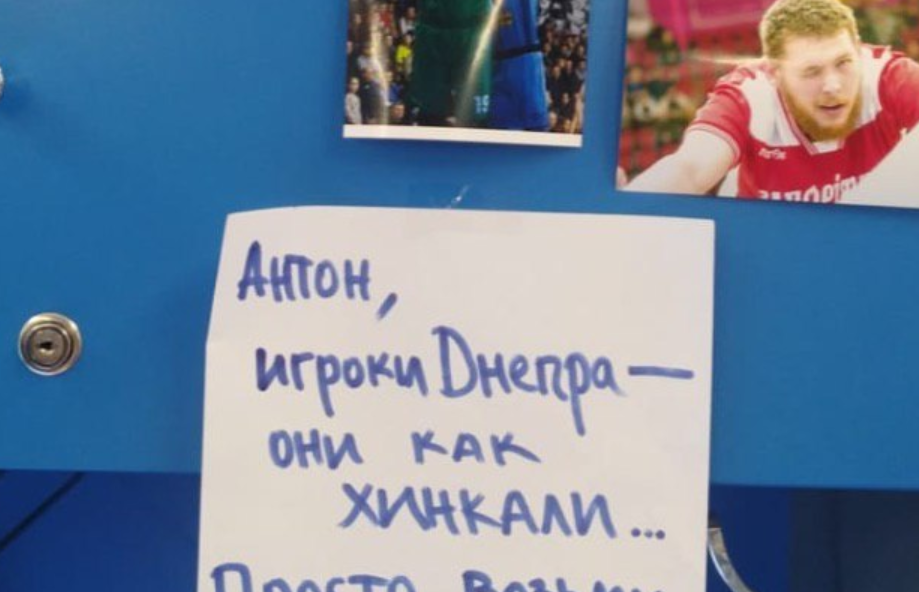 19
Антон,
игроки Днепра —
они как
ХИНКАЛИ...
Просто